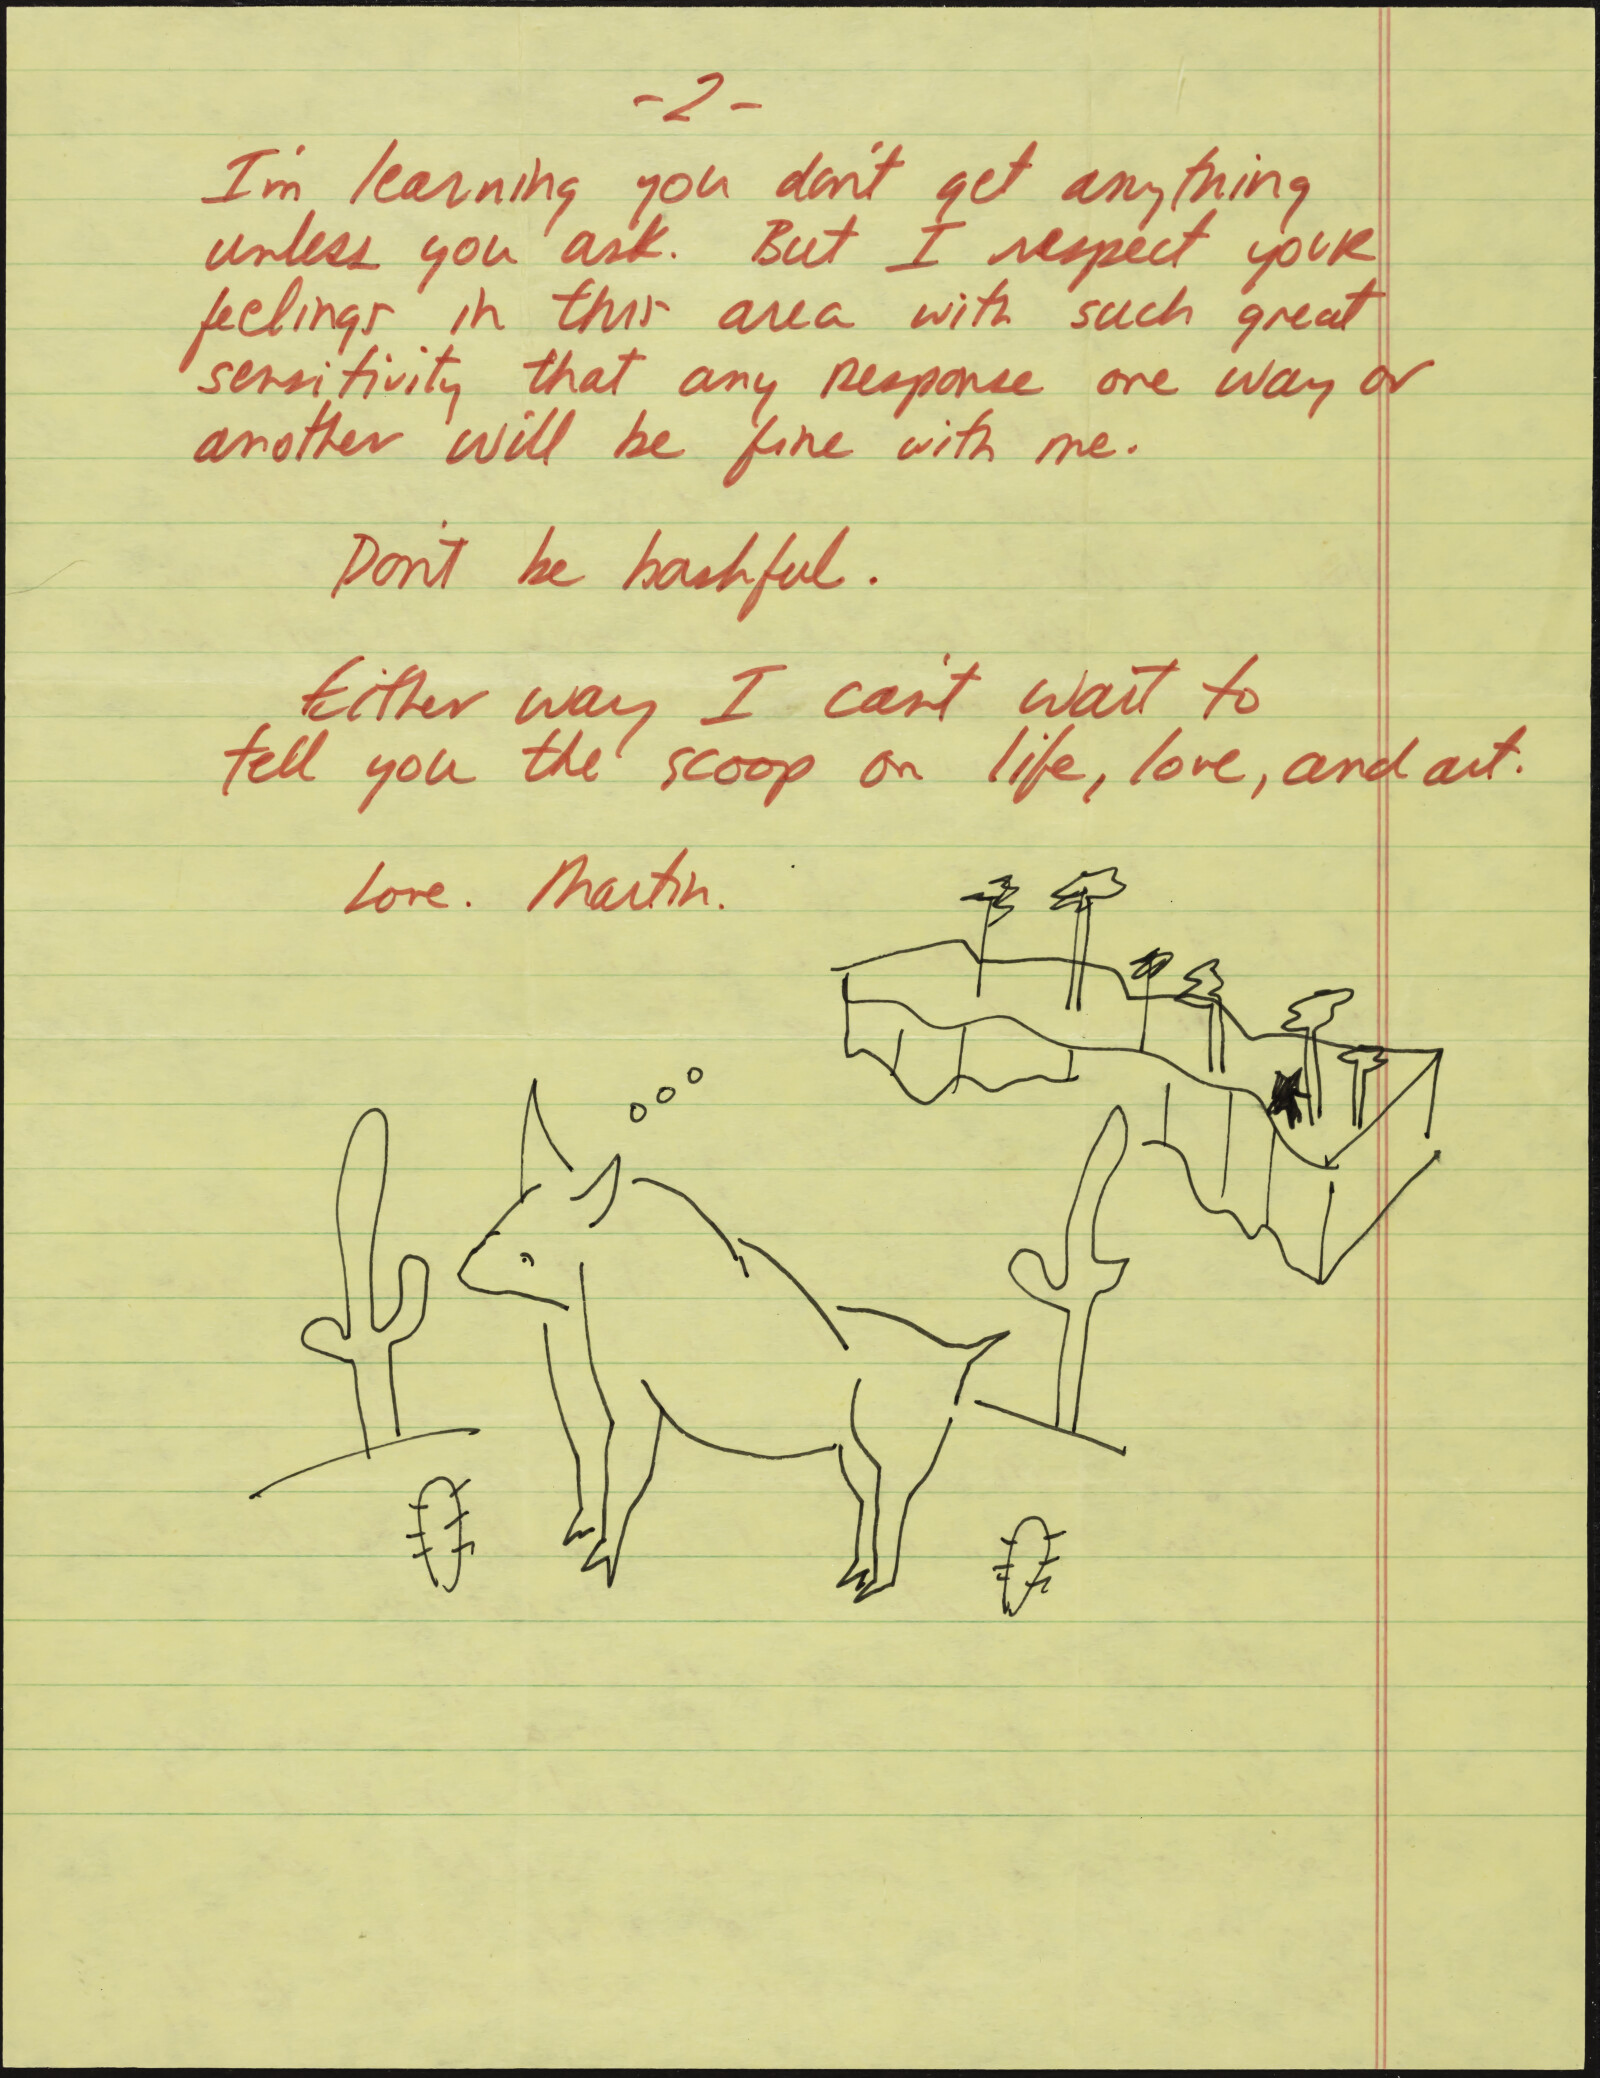 -2-
I'm learning you don't get anything
unless you ask. But I respect your
feelings in this area with such great
sensitivity that any response one way or
another will be fine with me.
Don't be bashful.
Either way I can't wait to
tell you the scoop on life, love, and art.
Love. Martin.